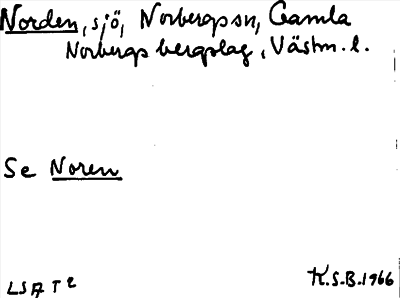 Norden, sjö, Norbergs sn, Gamla
Norbergs bergslag, Västm. l.
Se Noren
LSA T²
K.S.B. 1966